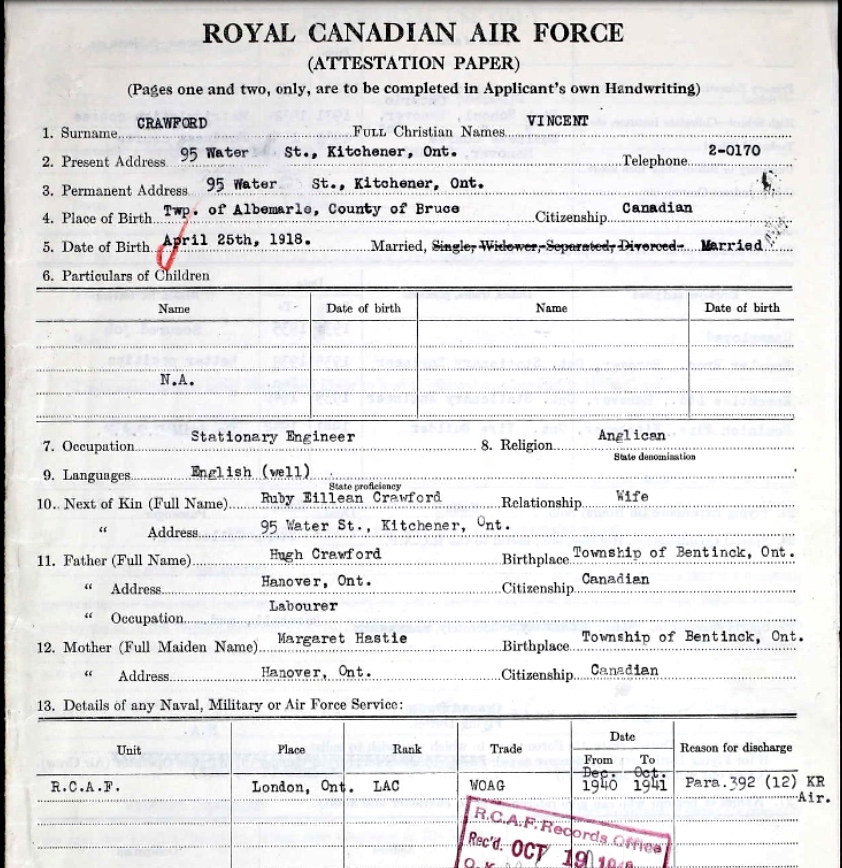 ROYAL CANADIAN AIR FORCE
(ATTESTATION PAPER)
(Pages one and two, only, are to be completed in Applicant's own Handwriting)
1. Surname CRAWFORD FULL Christian Names VINCENT
2. Present Address 95 Water St., Kitchener, Ont. Telephone 2-0170
3. Permanent Address 95 Water St., Kitchener, Ont.
4. Place of Birth Twp. of Albemarle, County of Bruce Citizenship Canadian
5. Date of Birth April 25th, 1918. Married, Single, Widower, Separated, Divorced. Married
6. Particulars of Children
Name Date of birth Name Date of birth
N.A.
7. Occupation Stationary Engineer 8. Religion Anglican
State denomination
9. Languages English (well)
State proficiency
10. Next of Kin (Full Name) Ruby Eillean Crawford Relationship Wife
" Address 95 Water St., Kitchener, Ont.
11. Father (Full Name) Hugh Crawford Birthplace Township of Bentinck, Ont.
" Address Hanover, Ont. Citizenship Canadian
" Occupation Labourer
12. Mother (Full Maiden Name) Margaret Hastie Birthplace Township of Bentinck, Ont.
" Address Hanover, Ont. Citizenship Canadian
13. Details of any Naval, Military or Air Force Service:
Unit Place Rank Trade Date Reason for discharge
From To
Dec. Oct.
R.C.A.F. London, Ont. LAC WOAG 1940 1941 Para.392 (12) KR
Air.
R.C.A.F. Records Office
Rec'd. OCT 19